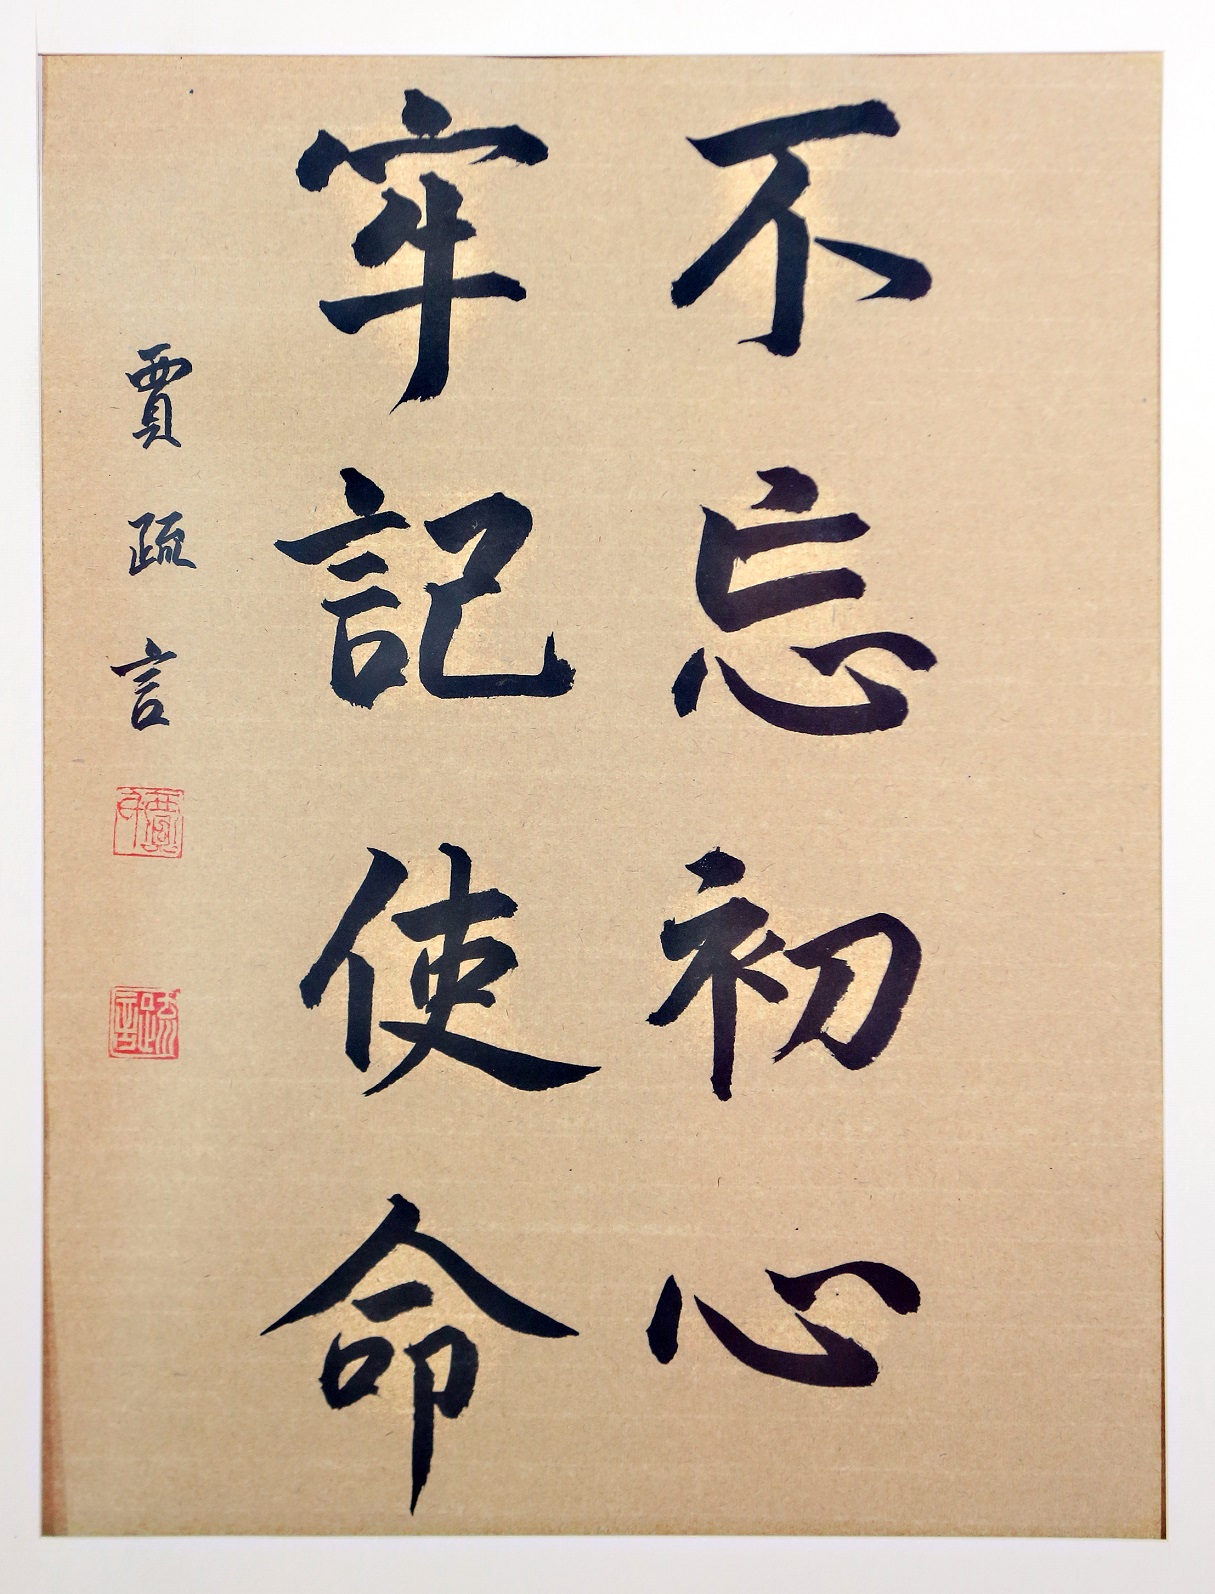 不忘初心
牢記使命
賈疏言